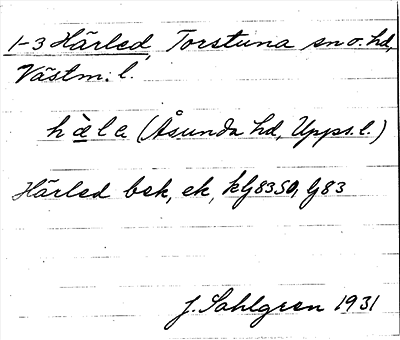 1-3 Härled, Torstuna sn o. hd,
Västm. l.
hæ̀le (Åsunda hd, Upps. l.)
Härled bsk, ek, kG83SO, G83
J. Sahlgren 1931